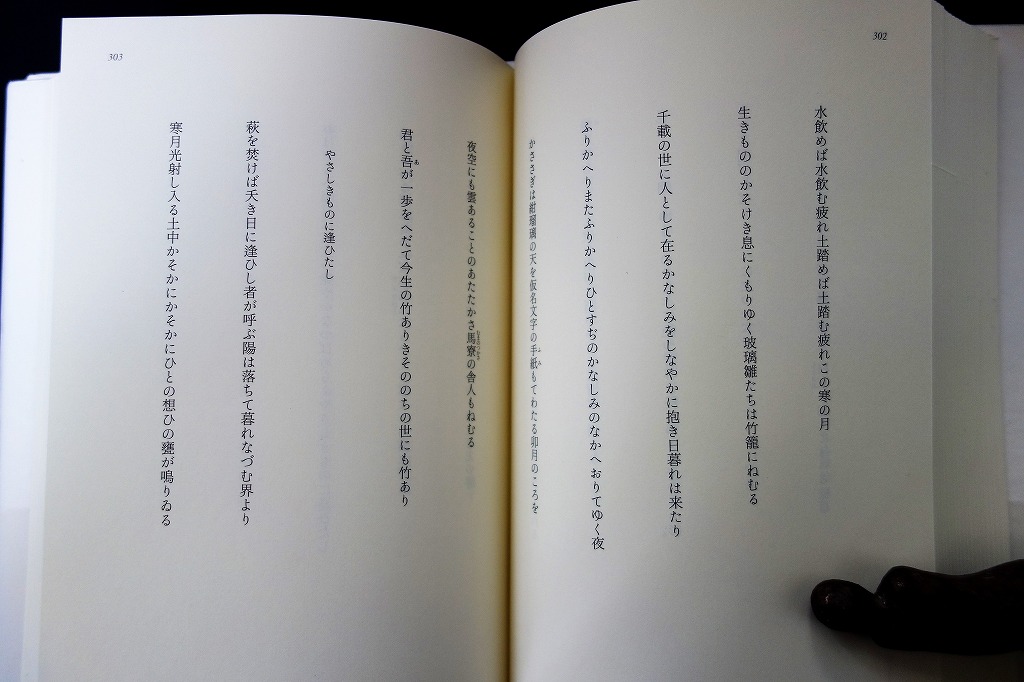 302
水飲めば水飲む疲れ土踏めば土踏む疲れこの寒の月
生きもののかそけき息にくもりゆく玻璃雛たちは竹籠にねむる
千載の世に人として在るかなしみをしなやかに抱き日暮れは来たり
ふりかへりまたふりかへりひとすぢのかなしみのなかへおりてゆく夜
かささぎは紺瑠璃の天を仮名文字の手紙もてわたる卯月のころを
ふみ
303
夜空にも雲あることのあたたかさ馬寮の舎人もねむる
うまのつかさ
君と吾が一歩をへだて今生の竹ありきそののちの世にも竹あり
あ
やさしきものに逢ひたし
萩を焚けば夭き日に逢ひし者が呼ぶ陽は落ちて暮れなづむ界より
寒月光射し入る土中かそかにかそかにひとの想ひの甕が鳴りゐる